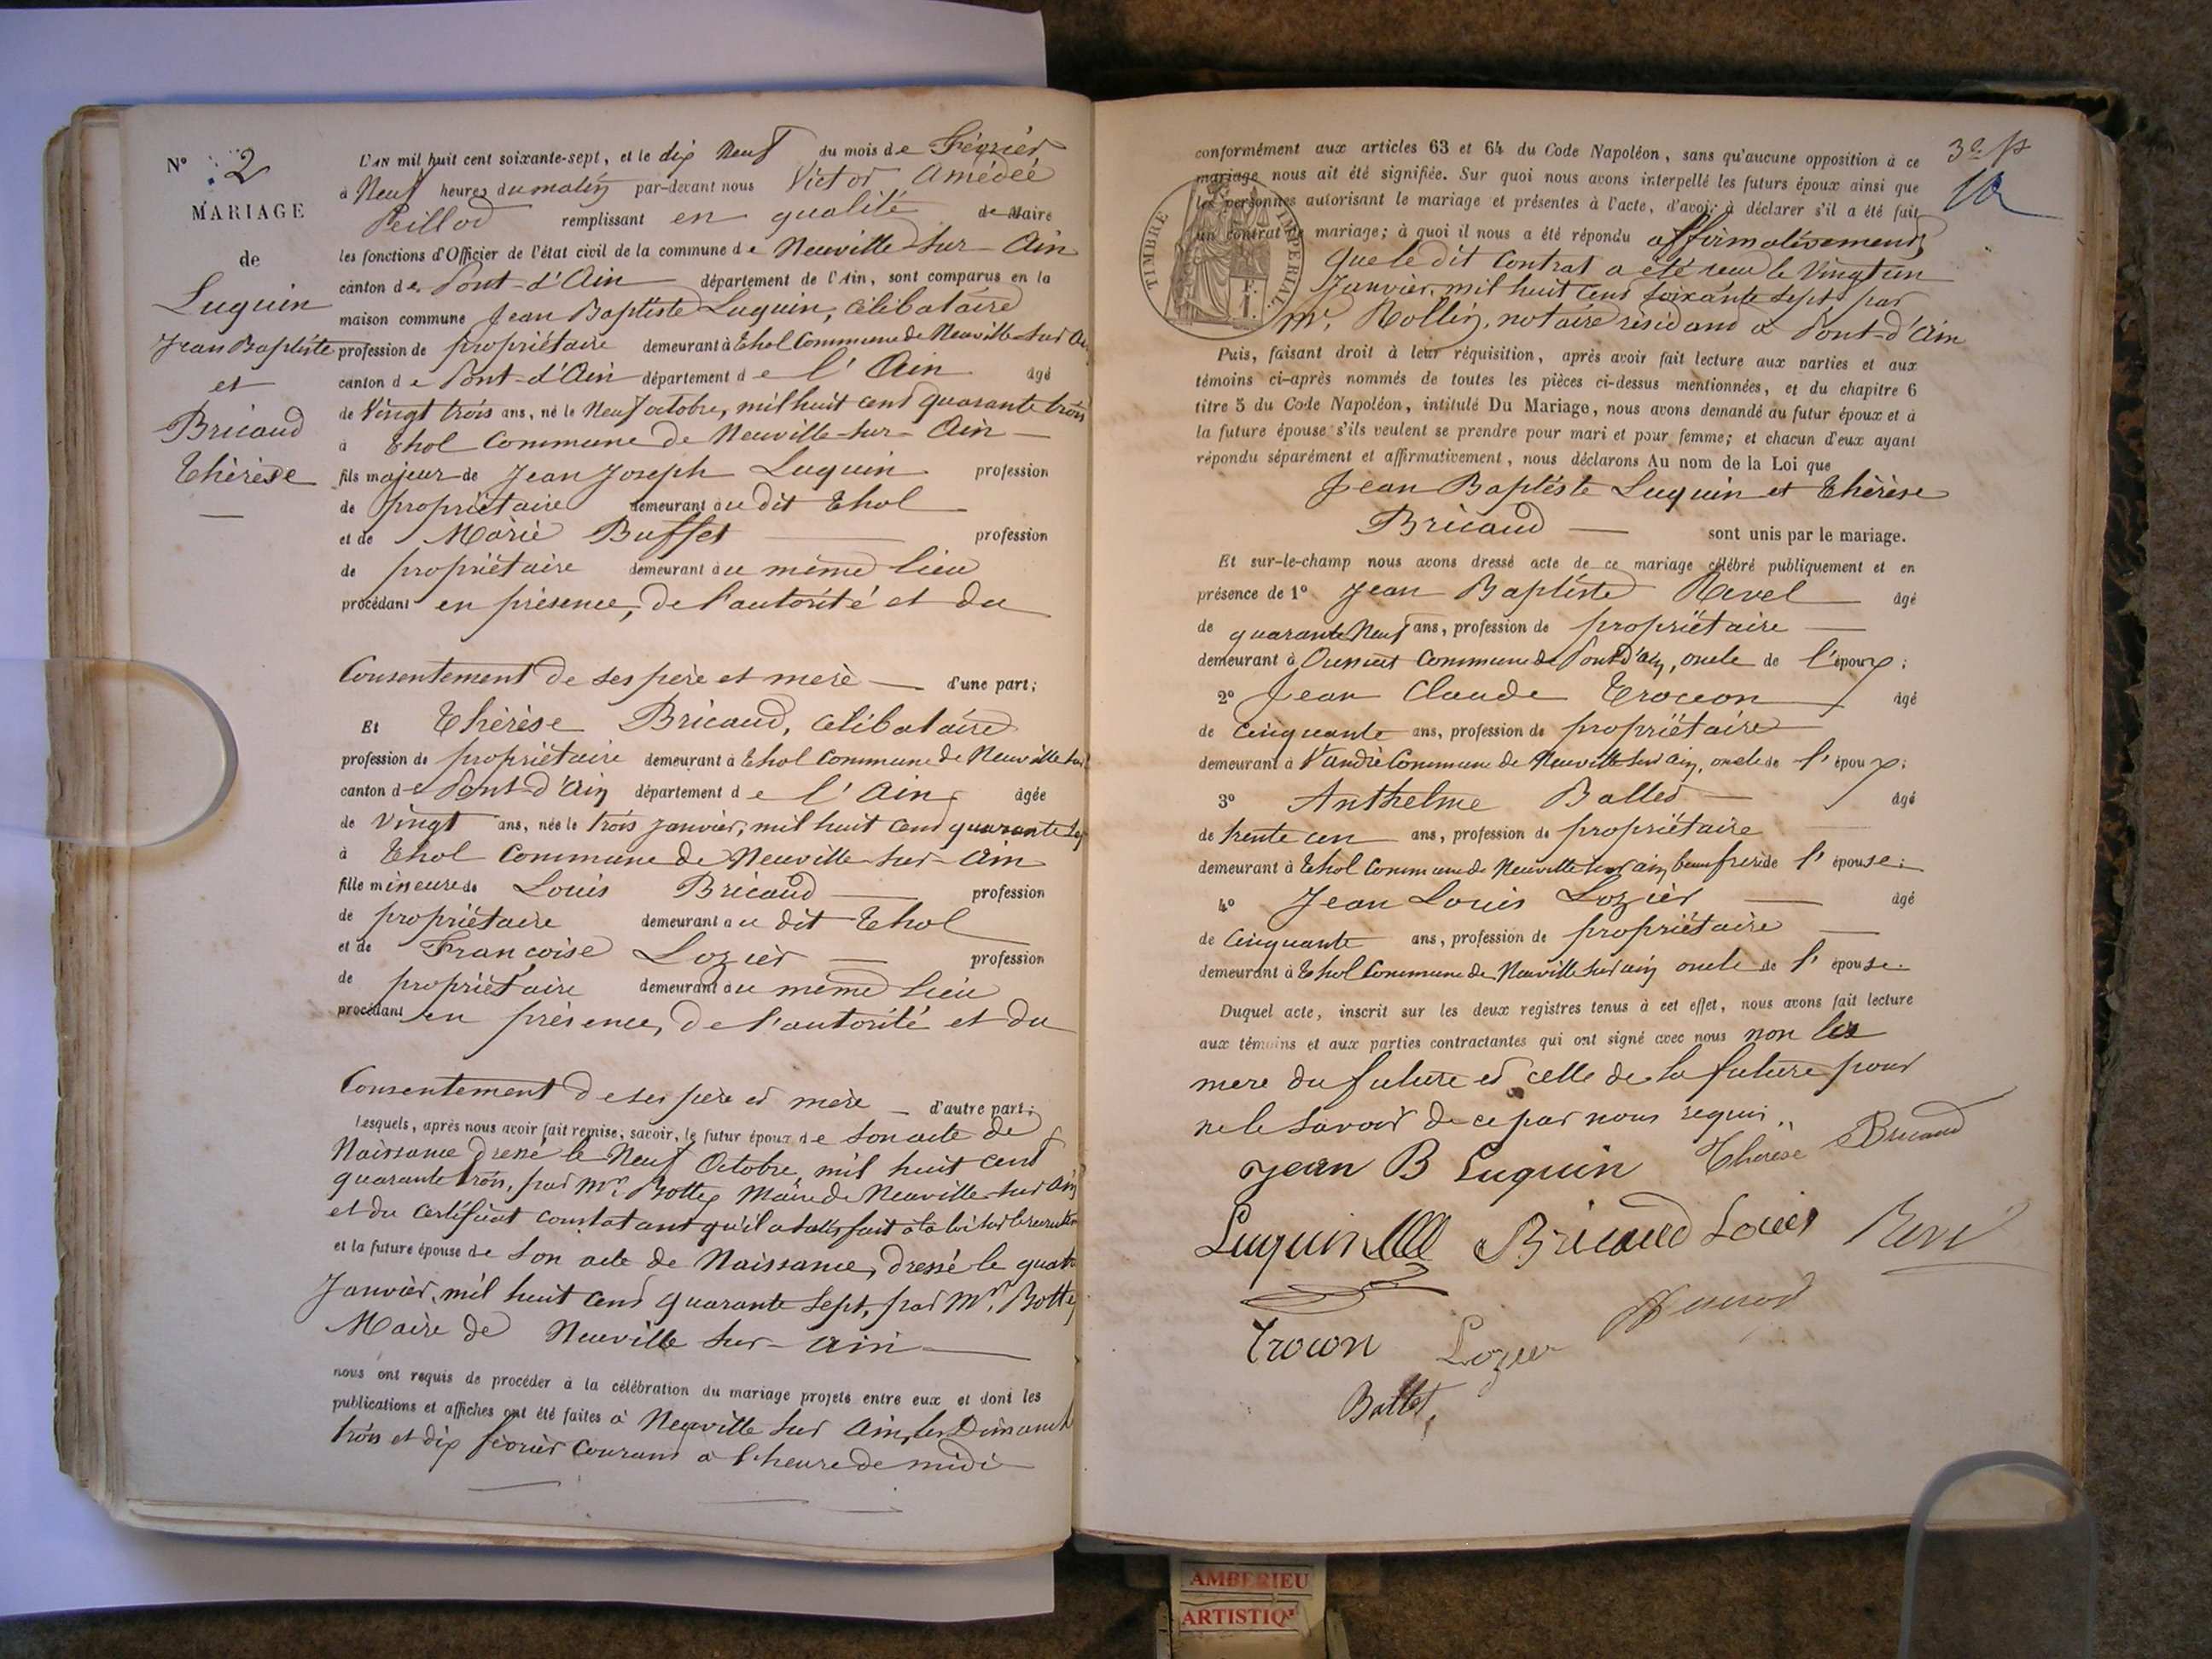 N° 2
MARIAGE
de
Luquin
Jean Baptiste
et
Bricaud
Thérèse
L'AN mil huit cent soixante-sept, et le dix Neuf du mois de Février
à Neuf heures du matin par-devant nous Victor Amédée
Peillod remplissant en qualité de Maire
les fonctions d'Officier de l'état civil de la commune de Neuville-sur-Ain
canton de Pont-d'Ain département de l'Ain, sont comparus en la
maison commune Jean Baptiste Luquin, célibataire
profession de propriétaire demeurant à Thol Commune de Neuville-sur Ain
canton de Pont-d'Ain département de l'Ain âgé
de Vingt trois ans, né le Neuf octobre, mil huit cent quarante trois
à Thol Commune de Neuville-sur-Ain
fils majeur de Jean Joseph Luquin profession
de propriétaire demeurant au dit Thol
et de Marie Buffet profession
de propriétaire demeurant au même lieu
procédant en présence, de l'autorité et du
Consentement de ses père et mère d'une part;
Et Thérèse Bricaud, célibataire
profession de propriétaire demeurant à Thol Commune de Neuville sur
canton de Pont-d'Ain département de l'Ain âgée
de vingt ans, née le trois janvier, mil huit cent quarante sept
à Thol Commune de Neuville-sur-Ain
fille mineure de Louis Bricaud profession
de propriétaire demeurant au dit Thol
et de Françoise Lozier profession
de propriétaire demeurant au même lieu
procédant en présence, de l'autorité et du
Consentement de ses père et mère d'autre part;
Lesquels, après nous avoir fait remise, savoir, le futur époux de son acte de
Naissance dressé le Neuf Octobre, mil huit cent
quarante trois, par Mr. Bottex Maire de Neuville-sur Ain
et du certificat constatant qu'il a satisfait à la loi sur le recrutem
et la future épouse de son acte de Naissance, dressé le quatre
Janvier, mil huit cent quarante sept, par Mr. Bottex
Maire de Neuville sur-Ain
nous ont requis de procéder à la célébration du mariage projeté entre eux et dont les
publications et affiches ont été faites à Neuville sur Ain, les Dimanch
trois et dix février courant à l'heure de midi
3e p
conformément aux articles 63 et 64 du Code Napoléon, sans qu'aucune opposition à ce
mariage nous ait été signifiée. Sur quoi nous avons interpellé les futurs époux ainsi que
les personnes autorisant le mariage et présentes à l'acte, d'avoir à déclarer s'il a été fait
un contrat de mariage; à quoi il nous a été répondu affirmativement
que le dit Contrat a été reçu le Vingt un
Janvier, mil huit cent soixante sept par
Mr. Rollin, notaire résidant à Pont-d'Ain
TIMBRE IMPERIAL
F.
1.
Puis, faisant droit à leur réquisition, après avoir fait lecture aux parties et aux
témoins ci-après nommés de toutes les pièces ci-dessus mentionnées, et du chapitre 6
titre 5 du Code Napoléon, intitulé Du Mariage, nous avons demandé au futur époux et à
la future épouse s'ils veulent se prendre pour mari et pour femme; et chacun d'eux ayant
répondu séparément et affirmativement, nous déclarons Au nom de la Loi que
Jean Baptiste Luquin et Thérèse
Bricaud sont unis par le mariage.
Et sur-le-champ nous avons dressé acte de ce mariage célébré publiquement et en
présence de 1° Jean Baptiste Ravel âgé
de quarante Neuf ans, profession de propriétaire
demeurant à Commune de Pont d'Ain, oncle de l'époux;
2° Jean Claude Trocon âgé
de Cinquante ans, profession de propriétaire
demeurant à Commune de Neuville sur ain, oncle de l'époux;
3° Anthelme Ballet âgé
de trente un ans, profession de propriétaire
demeurant à Thol Commune de Neuville sur ain, beau frère de l'épouse;
4° Jean Louis Lozier âgé
de Cinquante ans, profession de propriétaire
demeurant à Thol Commune de Neuville sur ain oncle de l'épouse.
Duquel acte, inscrit sur les deux registres tenus à cet effet, nous avons fait lecture
aux témoins et aux parties contractantes qui ont signé avec nous non la
mere du future et celle de la future pour
ne le savoir de ce par nous requis..
Jean B Luquin Thérèse Bricaud
Luquin Bricaud Louis
Trocon Lozier
Ballet
AMBERIEU
ARTISTIQ